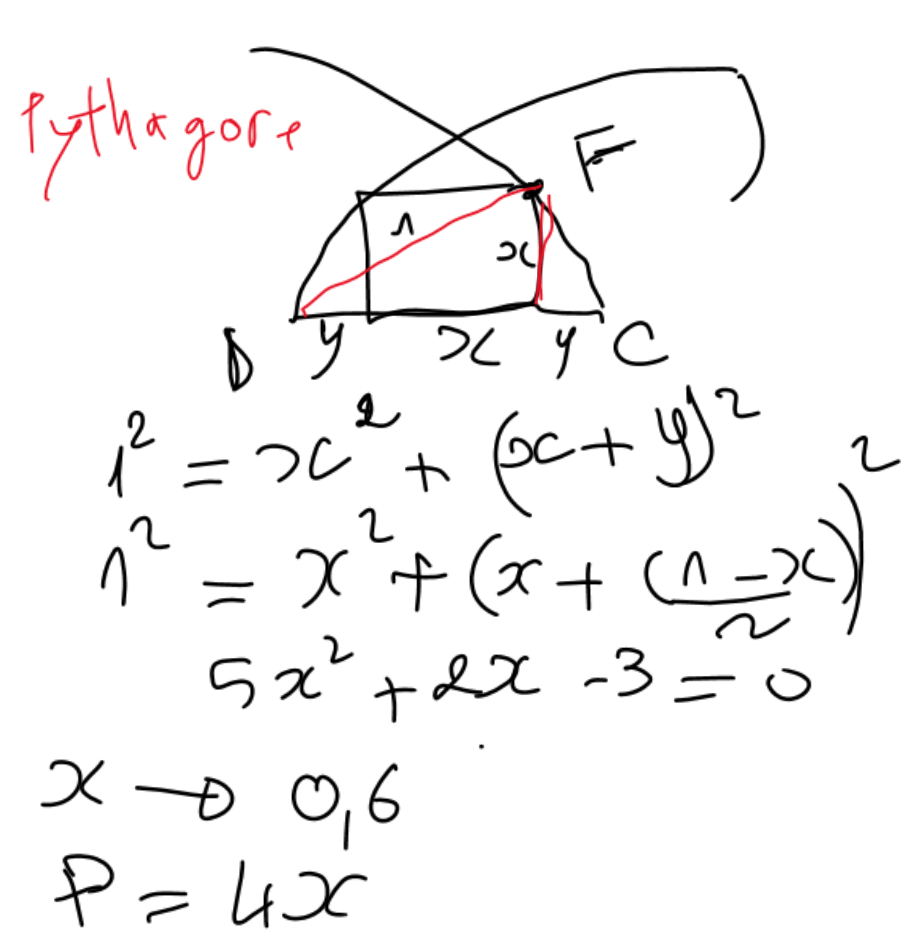 Pythagore
F
1
x
D y x y C
1² = x² + (x + y)²
1² = x² + (x + (1 - x)/2)²
5x² + 2x - 3 = 0
x → 0,6
P = 4x